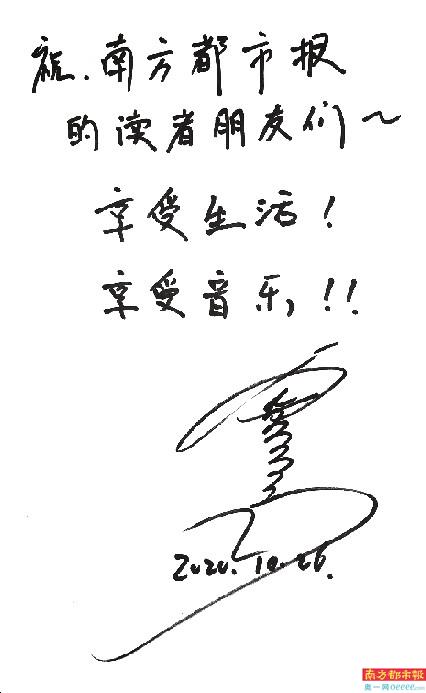 祝.南方都市报
的读者朋友们～
享受生活！
享受音乐！！
2020.10.26.
南方都市報
奥一网oeeee.com